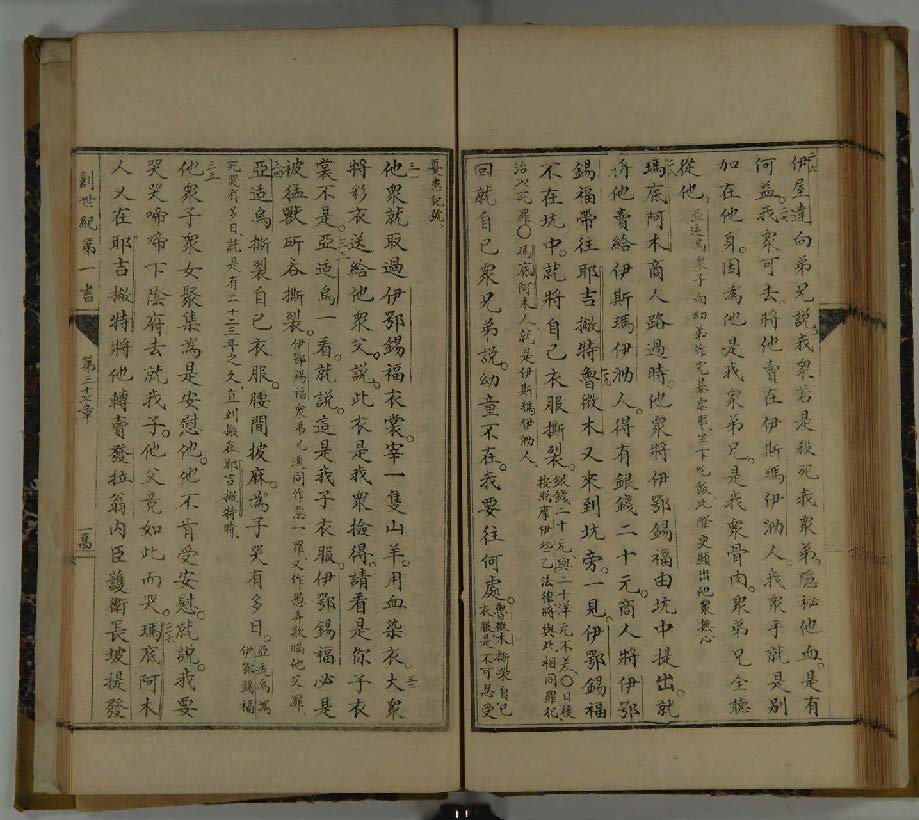 伊屋達向弟兄說。我衆若是殺死我衆弟。隱祕他血。是有
何益。我衆可去。將他賣在伊斯瑪伊汭人。我衆手就是別
加在他身。因為他是我衆弟兄。是我衆骨肉。衆弟兄全聽
從他。亞适烏衆子向幼弟作完暴虐事坐下吃飯此際更顯出他衆無心
瑪底阿木商人路過時。他衆將伊鄂錫福由坑中提出。就
將他賣給伊斯瑪伊汭人。得有銀錢二十元。商人將伊鄂
錫福帶往耶吉撇特魯微木又來到坑旁。一見伊鄂錫福
不在坑中。就將自己衣服撕裂。銀錢二十元。與二十洋元不差。〇日後
按照摩伊些乙法律將與此相同罪犯
治以死罪〇瑪底阿木人就是伊斯瑪伊汭人、
回就自己衆兄弟說。幼童不在。我要往何處。魯微木撕裂自己
衣服是不可忍受
憂患記號、
他衆就取過伊鄂錫福衣裳。宰一隻山羊。用血染衣。大衆
將彩衣送給他衆父。說。此衣是我衆撿得。請看是你子衣
裳不是。亞适烏一看。就說。這是我子衣服。伊鄂錫福必是
被猛獸所吞撕裂。伊鄂錫福衆弟兄通同作惡一罪、又作愚弄欺瞞他父罪、
亞适烏撕裂自己衣服。腰間披麻。為子哭有多日。亞适烏為
伊鄂錫福
死哭有多日、就是有二十二三年之久、直到搬在耶吉撇特時、
他衆子衆女聚集為是安慰他。他不肯受安慰。就說。我要
哭哭啼啼下陰府去就我子。他父竟如此而哭。瑪底阿木
人又在耶吉撇特將他轉賣發拉翁內臣護衛長坡提發
創世紀第一書 第三十七章